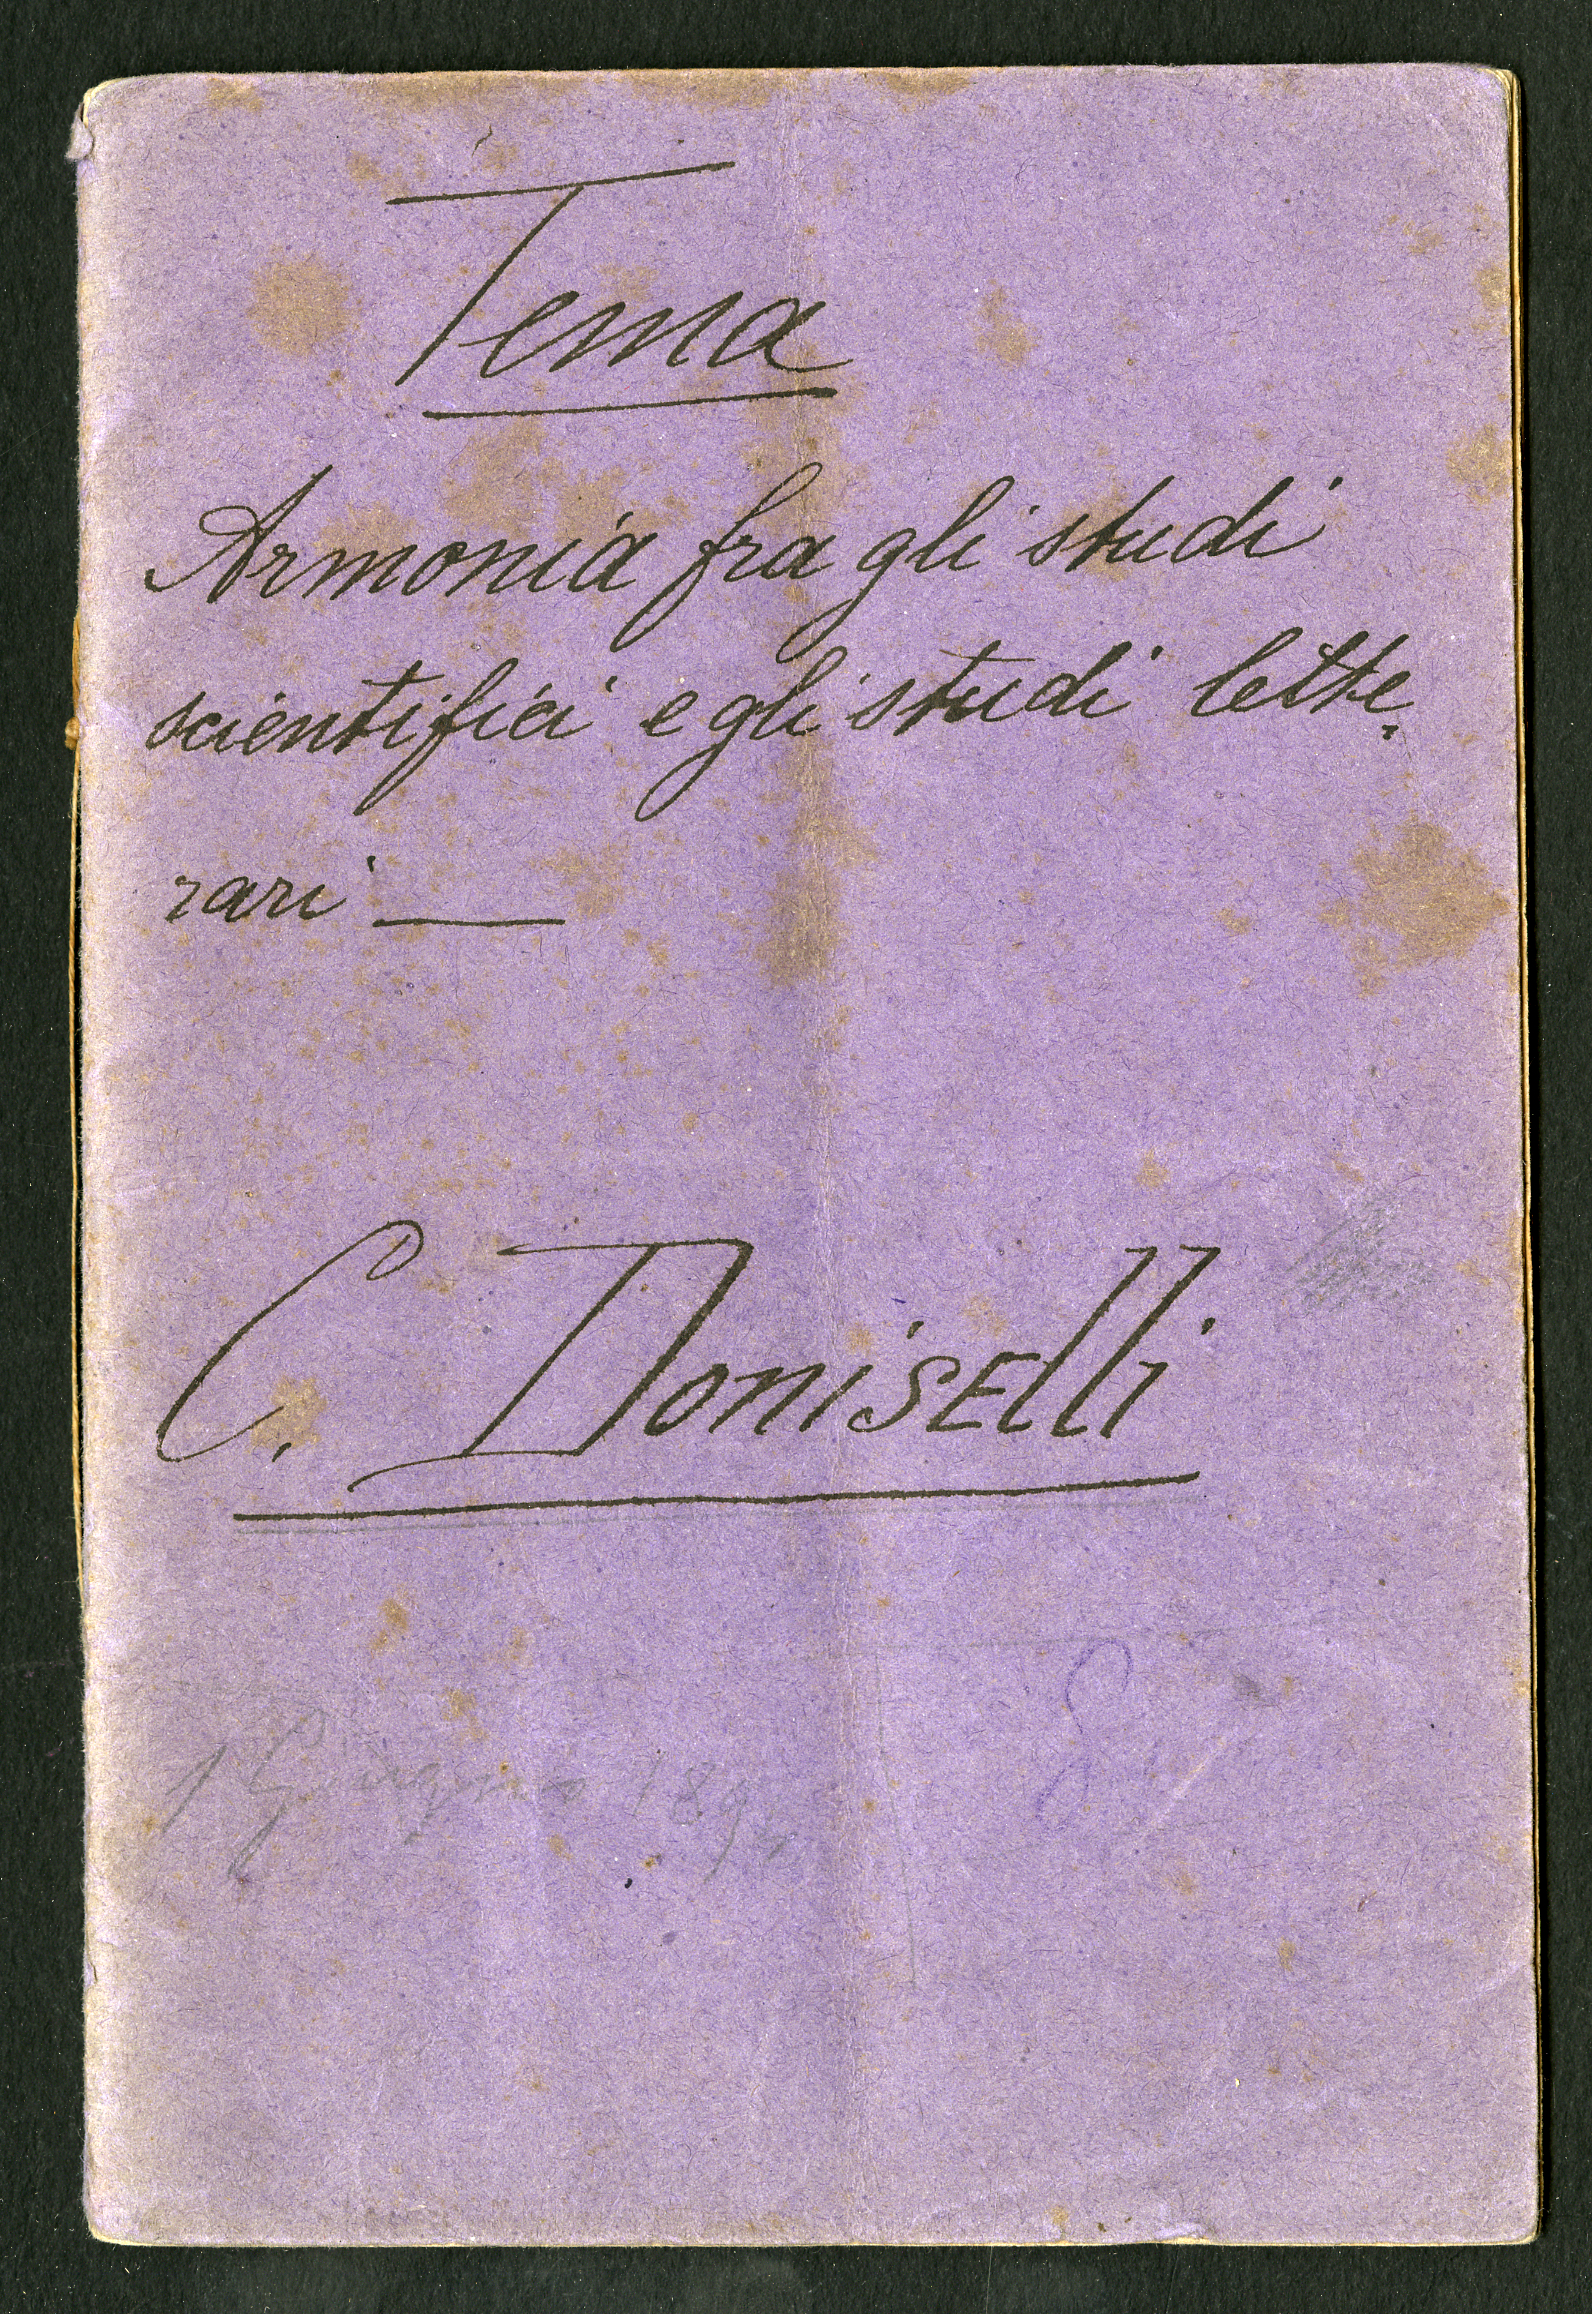 Tema
Armonia fra gli studi
scientifici e gli studi lette-
rari —
C. Doniselli
1 Giugno 189